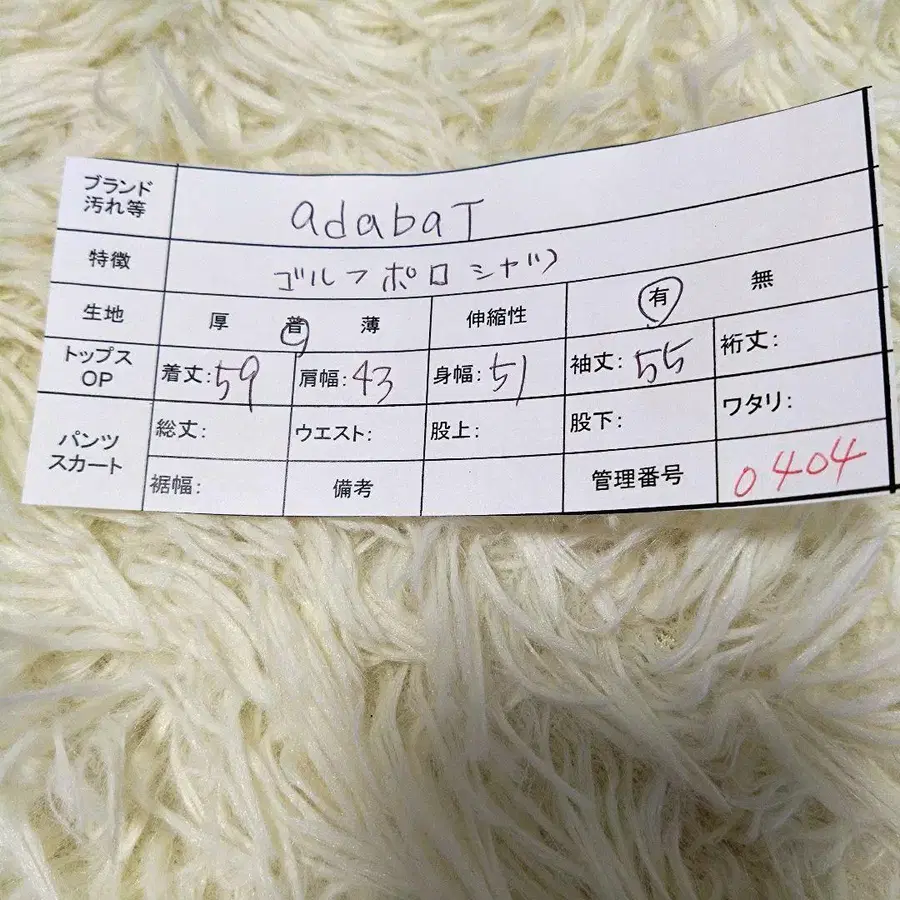 ブランド
汚れ等
adabaT
特徴
ゴルフポロシャツ
生地 厚 普 薄 伸縮性 有 無
トップス
OP
着丈:59 肩幅:43 身幅:51 袖丈:55 裄丈:
パンツ
スカート
総丈: ウエスト: 股上: 股下: ワタリ:
裾幅: 備考 管理番号 0404